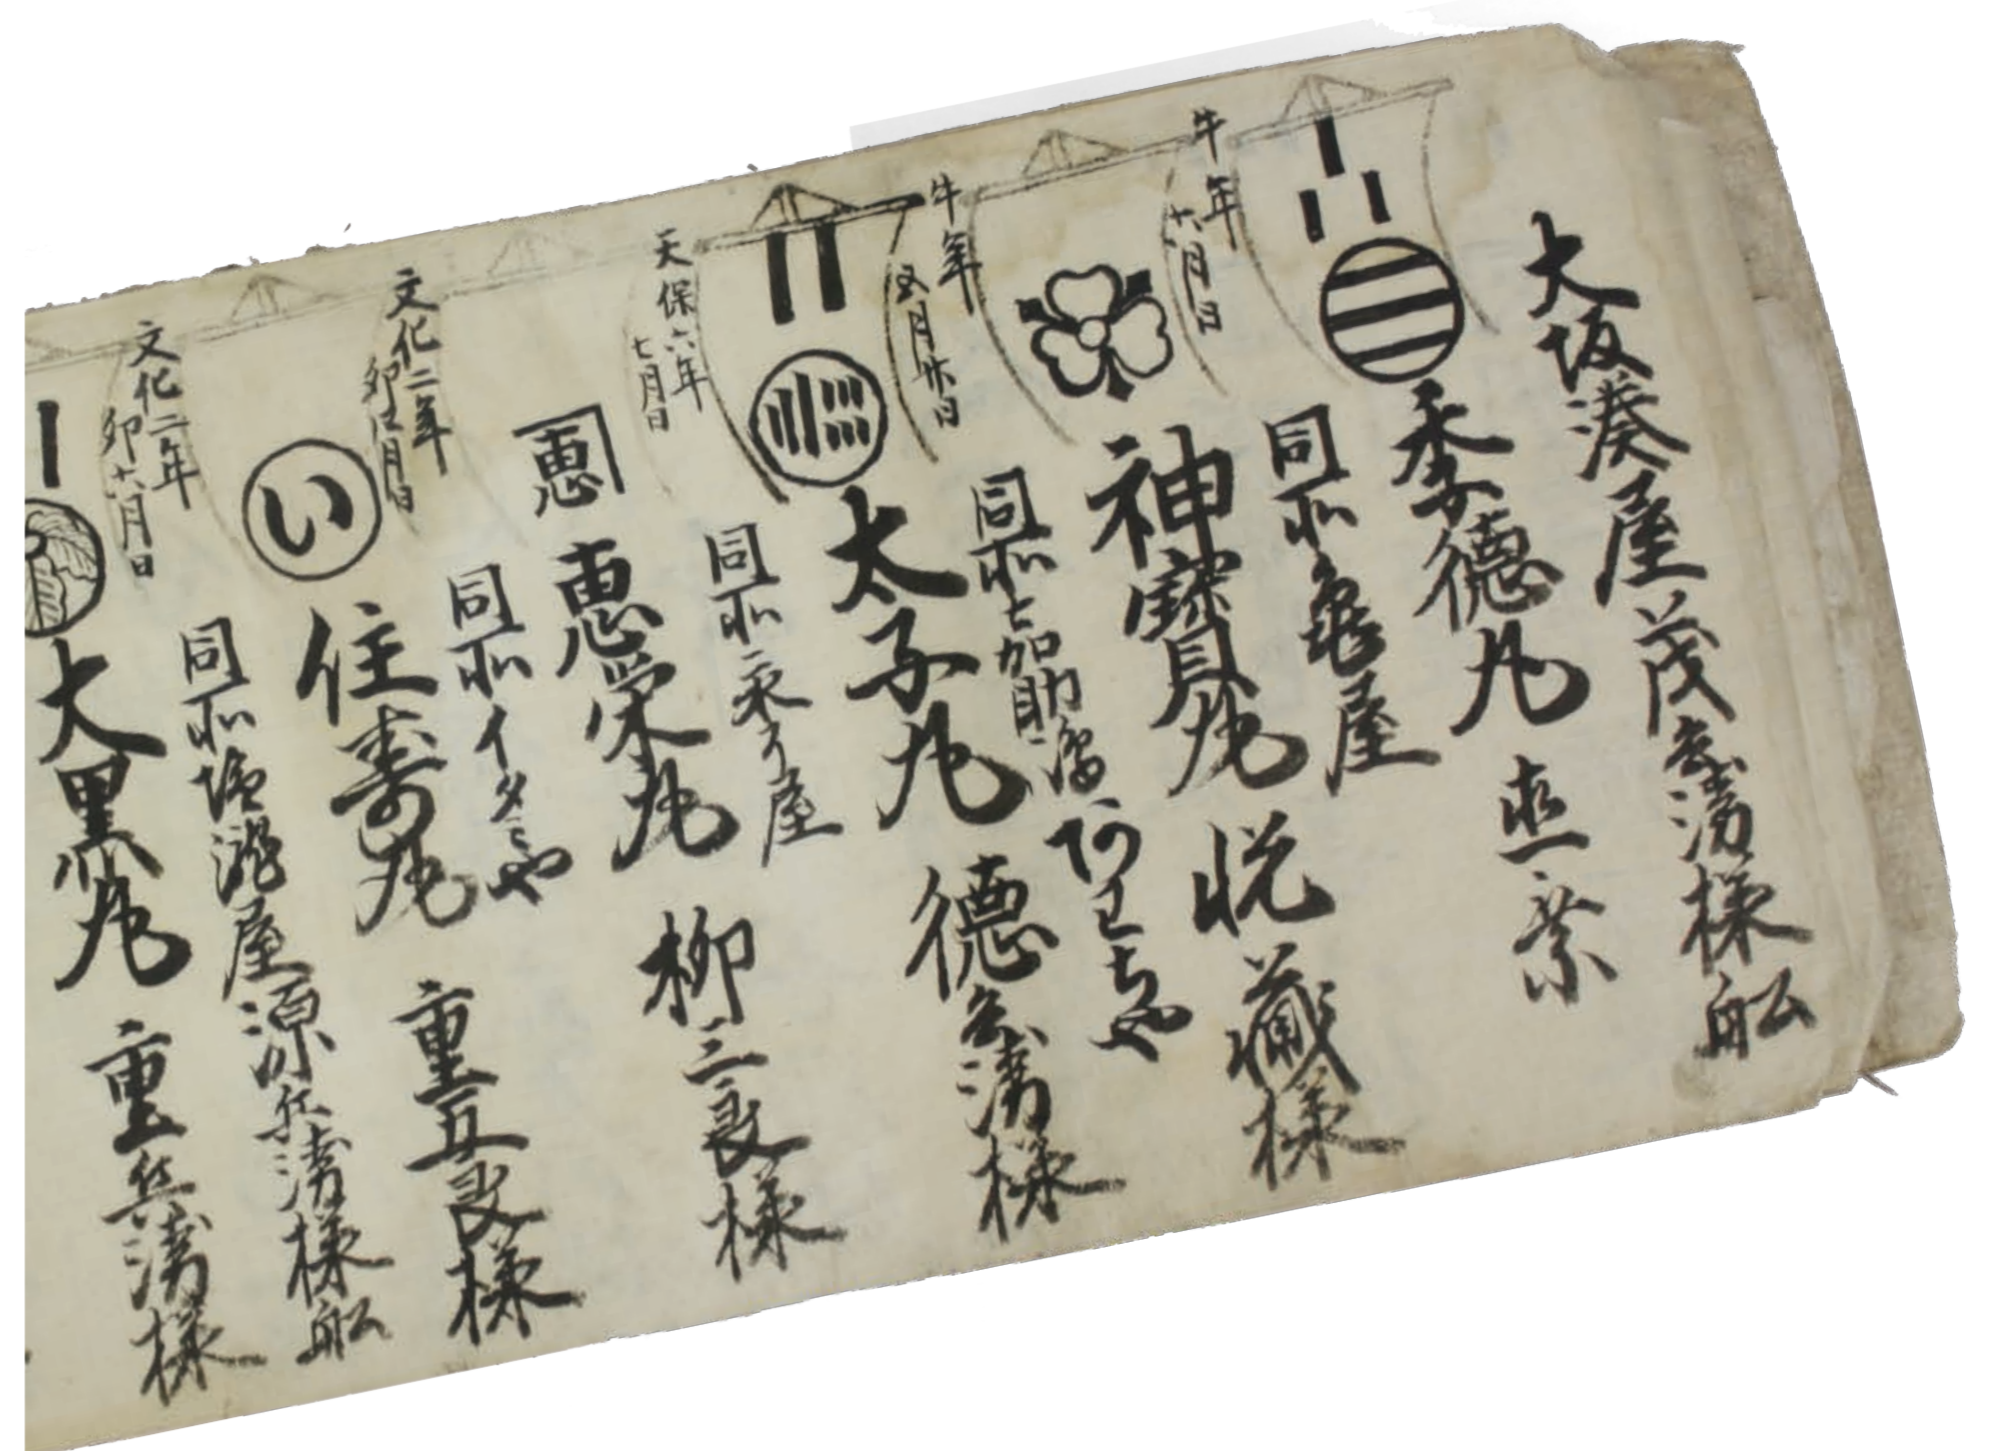 大坂湊屋茂兵衛様舩
季徳丸 直乗
午年
六月日
同所亀屋
神寳丸 悦蔵様
午年
五月廿日
同所
太子丸 徳兵衛様
天保六年
七月日
同所
恵
恵栄丸 柳三良様
文化二年
卯五月日
同所イタミや
い
住寿丸 重五良様
文化二年
卯六月日
同所塩瀧屋源兵衛様舩
大黒丸 重兵衛様